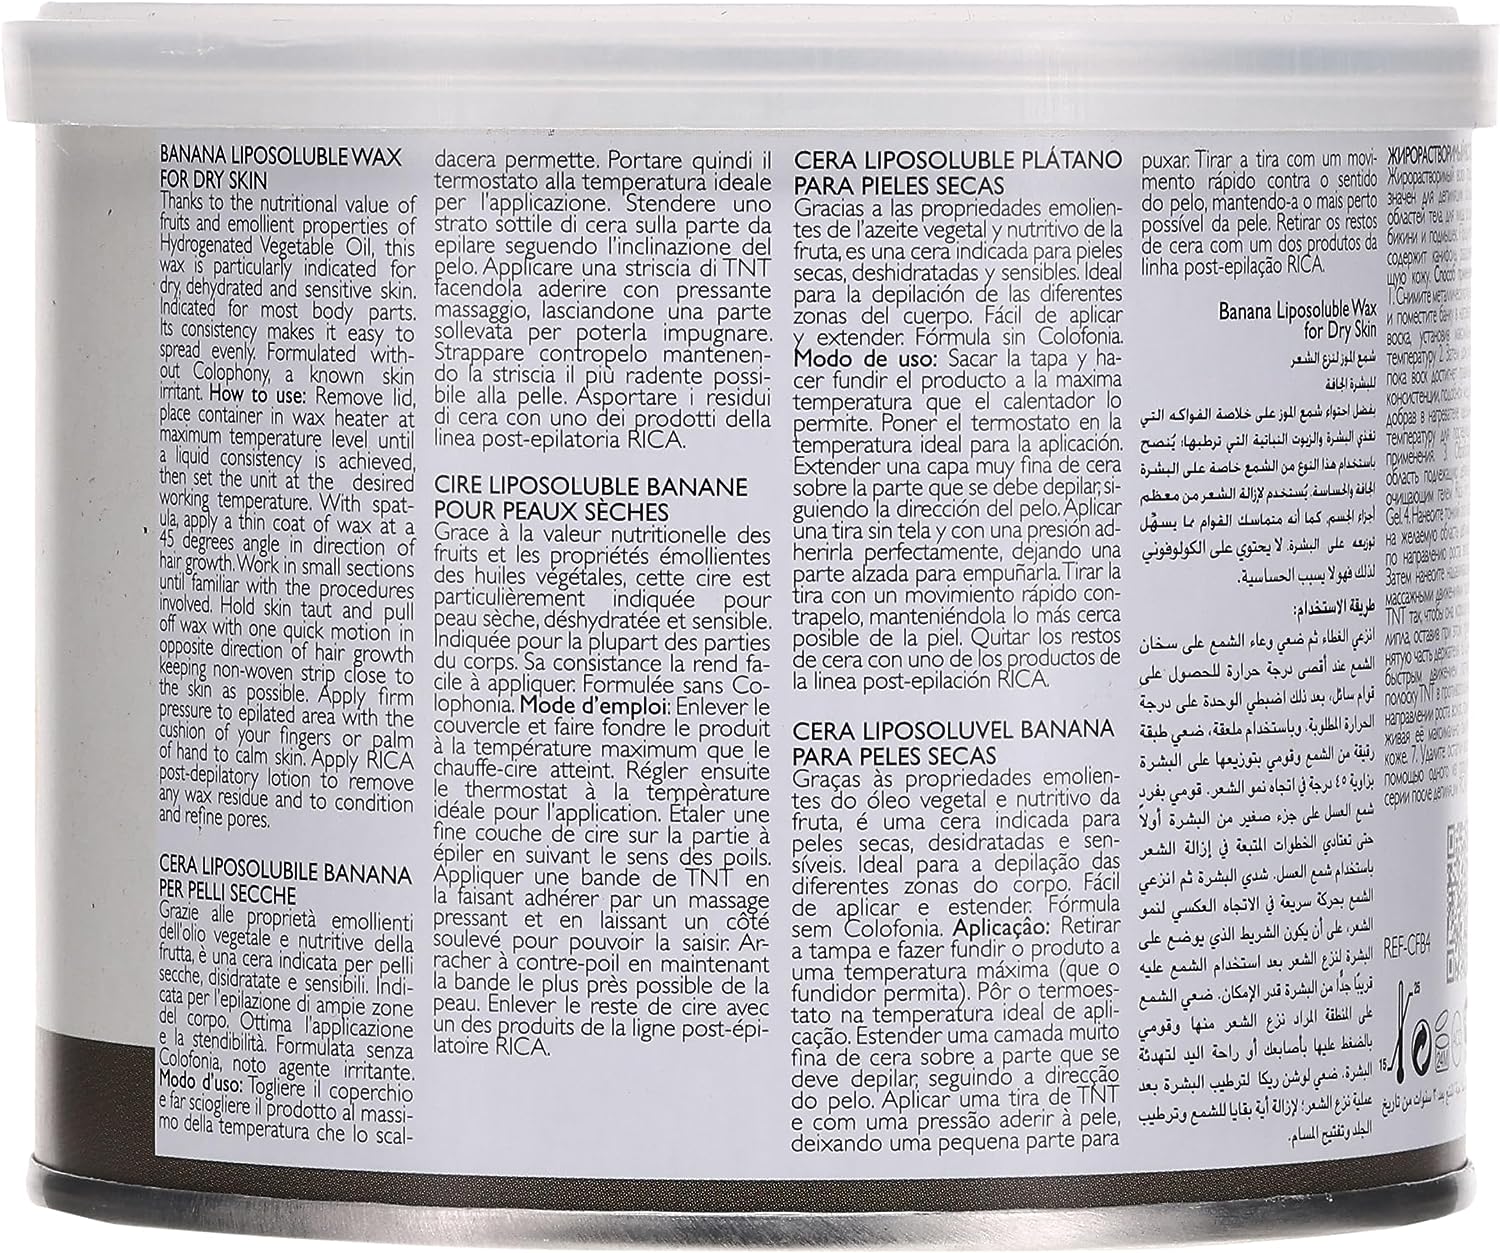 BANANA LIPOSOLUBLE WAX
FOR DRY SKIN
Thanks to the nutritional value of
fruits and emollient properties of
Hydrogenated Vegetable Oil, this
wax is particularly indicated for
dry, dehydrated and sensitive skin.
Indicated for most body parts.
Its consistency makes it easy to
spread evenly. Formulated with-
out Colophony, a known skin
irritant. How to use: Remove lid,
place container in wax heater at
maximum temperature level until
a liquid consistency is achieved,
then set the unit at the desired
working temperature. With spat-
ula, apply a thin coat of wax at a
45 degrees angle in direction of
hair growth. Work in small sections
until familiar with the procedures
involved. Hold skin taut and pull
off wax with one quick motion in
opposite direction of hair growth
keeping non-woven strip close to
the skin as possible. Apply firm
pressure to epilated area with the
cushion of your fingers or palm
of hand to calm skin. Apply RICA
post-depilatory lotion to remove
any wax residue and to condition
and refine pores.
CERA LIPOSOLUBILE BANANA
PER PELLI SECCHE
Grazie alle proprietà emollienti
dell'olio vegetale e nutritive della
frutta, è una cera indicata per pelli
secche, disidratate e sensibili. Indi-
cata per l'epilazione di ampie zone
del corpo. Ottima l'applicazione
e la stendibilità. Formulata senza
Colofonia, noto agente irritante.
Modo d'uso: Togliere il coperchio
e far sciogliere il prodotto al massi-
mo della temperatura che lo scal-
dacera permette. Portare quindi il
termostato alla temperatura ideale
per l'applicazione. Stendere uno
strato sottile di cera sulla parte da
epilare seguendo l'inclinazione del
pelo. Applicare una striscia di TNT
facendola aderire con pressante
massaggio, lasciandone una parte
sollevata per poterla impugnare.
Strappare contropelo mantenen-
do la striscia il più radente possi-
bile alla pelle. Asportare i residui
di cera con uno dei prodotti della
linea post-epilatoria RICA.
CIRE LIPOSOLUBLE BANANE
POUR PEAUX SÈCHES
Grace à la valeur nutritionelle des
fruits et les propriétés émollientes
des huiles végétales, cette cire est
particulièrement indiquée pour
peau sèche, déshydratée et sensible.
Indiquée pour la plupart des parties
du corps. Sa consistance la rend fa-
cile à appliquer. Formulée sans Co-
lophonia. Mode d'emploi: Enlever le
couvercle et faire fondre le produit
à la température maximum que le
chauffe-cire atteint. Régler ensuite
le thermostat à la tempèrature
idéale pour l'application. Étaler une
fine couche de cire sur la partie à
épiler en suivant le sens des poils.
Appliquer une bande de TNT en
la faisant adhérer par un massage
pressant et en laissant un côté
soulevé pour pouvoir la saisir. Ar-
racher à contre-poil en maintenant
la bande le plus près possible de la
peau. Enlever le reste de cire avec
un des produits de la ligne post-épi-
latoire RICA.
CERA LIPOSOLUBLE PLÁTANO
PARA PIELES SECAS
Gracias a las propriedades emolien-
tes de l'azeite vegetal y nutritivo de la
fruta, es una cera indicada para pieles
secas, deshidratadas y sensibles. Ideal
para la depilación de las diferentes
zonas del cuerpo. Fácil de aplicar
y extender. Fórmula sin Colofonia.
Modo de uso: Sacar la tapa y ha-
cer fundir el producto a la maxima
temperatura que el calentador lo
permite. Poner el termostato en la
temperatura ideal para la aplicación.
Extender una capa muy fina de cera
sobre la parte que se debe depilar, si-
guiendo la dirección del pelo. Aplicar
una tira sin tela y con una presión ad-
herirla perfectamente, dejando una
parte alzada para empuñarla. Tirar la
tira con un movimiento rápido con-
trapelo, manteniéndola lo más cerca
posible de la piel. Quitar los restos
de cera con uno de los productos de
la linea post-epilación RICA.
CERA LIPOSOLUVEL BANANA
PARA PELES SECAS
Graças às propriedades emolien-
tes do óleo vegetal e nutritivo da
fruta, é uma cera indicada para
peles secas, desidratadas e sen-
síveis. Ideal para a depilação das
diferentes zonas do corpo. Fácil
de aplicar e estender. Fórmula
sem Colofonia. Aplicação: Retirar
a tampa e fazer fundir o produto a
uma temperatura máxima (que o
fundidor permita). Pôr o termoes-
tato na temperatura ideal de apli-
cação. Estender uma camada muito
fina de cera sobre a parte que se
deve depilar, seguindo a direcção
do pelo. Aplicar uma tira de TNT
e com uma pressão aderir à pele,
deixando uma pequena parte para
puxar. Tirar a tira com um movi-
mento rápido contra o sentido
do pelo, mantendo-a o mais perto
possível da pele. Retirar os restos
de cera com um dos produtos da
linha post-epilação RICA.
Banana Liposoluble Wax
for Dry Skin
شمع الموز لنزع الشعر
للبشرة الجافة
بفضل احتواء شمع الموز على خلاصة الفواكه التي
تغذي البشرة والزيوت النباتية التي ترطبها؛ يُنصح
باستخدام هذا النوع من الشمع خاصة على البشرة
الجافة والحساسة. يُستخدم لإزالة الشعر من معظم
أجزاء الجسم. كما أنه متماسك القوام مما يسهّل
توزيعه على البشرة. لا يحتوي على الكولوفوني
لذلك فهو لا يسبب الحساسية.
طريقة الاستخدام:
انزعي الغطاء ثم ضعي وعاء الشمع على سخان
الشمع عند أقصى درجة حرارة للحصول على
قوام سائل، بعد ذلك اضبطي الوحدة على درجة
الحرارة المطلوبة. وباستخدام ملعقة، ضعي طبقة
رقيقة من الشمع وقومي بتوزيعها على البشرة
بزاوية ٤٥ درجة في اتجاه نمو الشعر. قومي بفرد
شمع العسل على جزء صغير من البشرة أولاً
حتى تعتادي الخطوات المتبعة في إزالة الشعر
باستخدام شمع العسل. شدي البشرة ثم انزعي
الشمع بحركة سريعة في الاتجاه العكسي لنمو
الشعر، على أن يكون الشريط الذي يوضع على
البشرة لنزع الشعر بعد استخدام الشمع عليه
قريبًا جداً من البشرة قدر الإمكان. ضعي الشمع
على المنطقة المراد نزع الشعر منها وقومي
بالضغط عليها بأصابعك أو راحة اليد لتهدئة
البشرة. ضعي لوشن ريكا لترطيب البشرة بعد
عملية نزع الشعر؛ لإزالة أية بقايا للشمع وترطيب
الجلد وتفتيح المسام.
REF-CFB4
25
15
24M